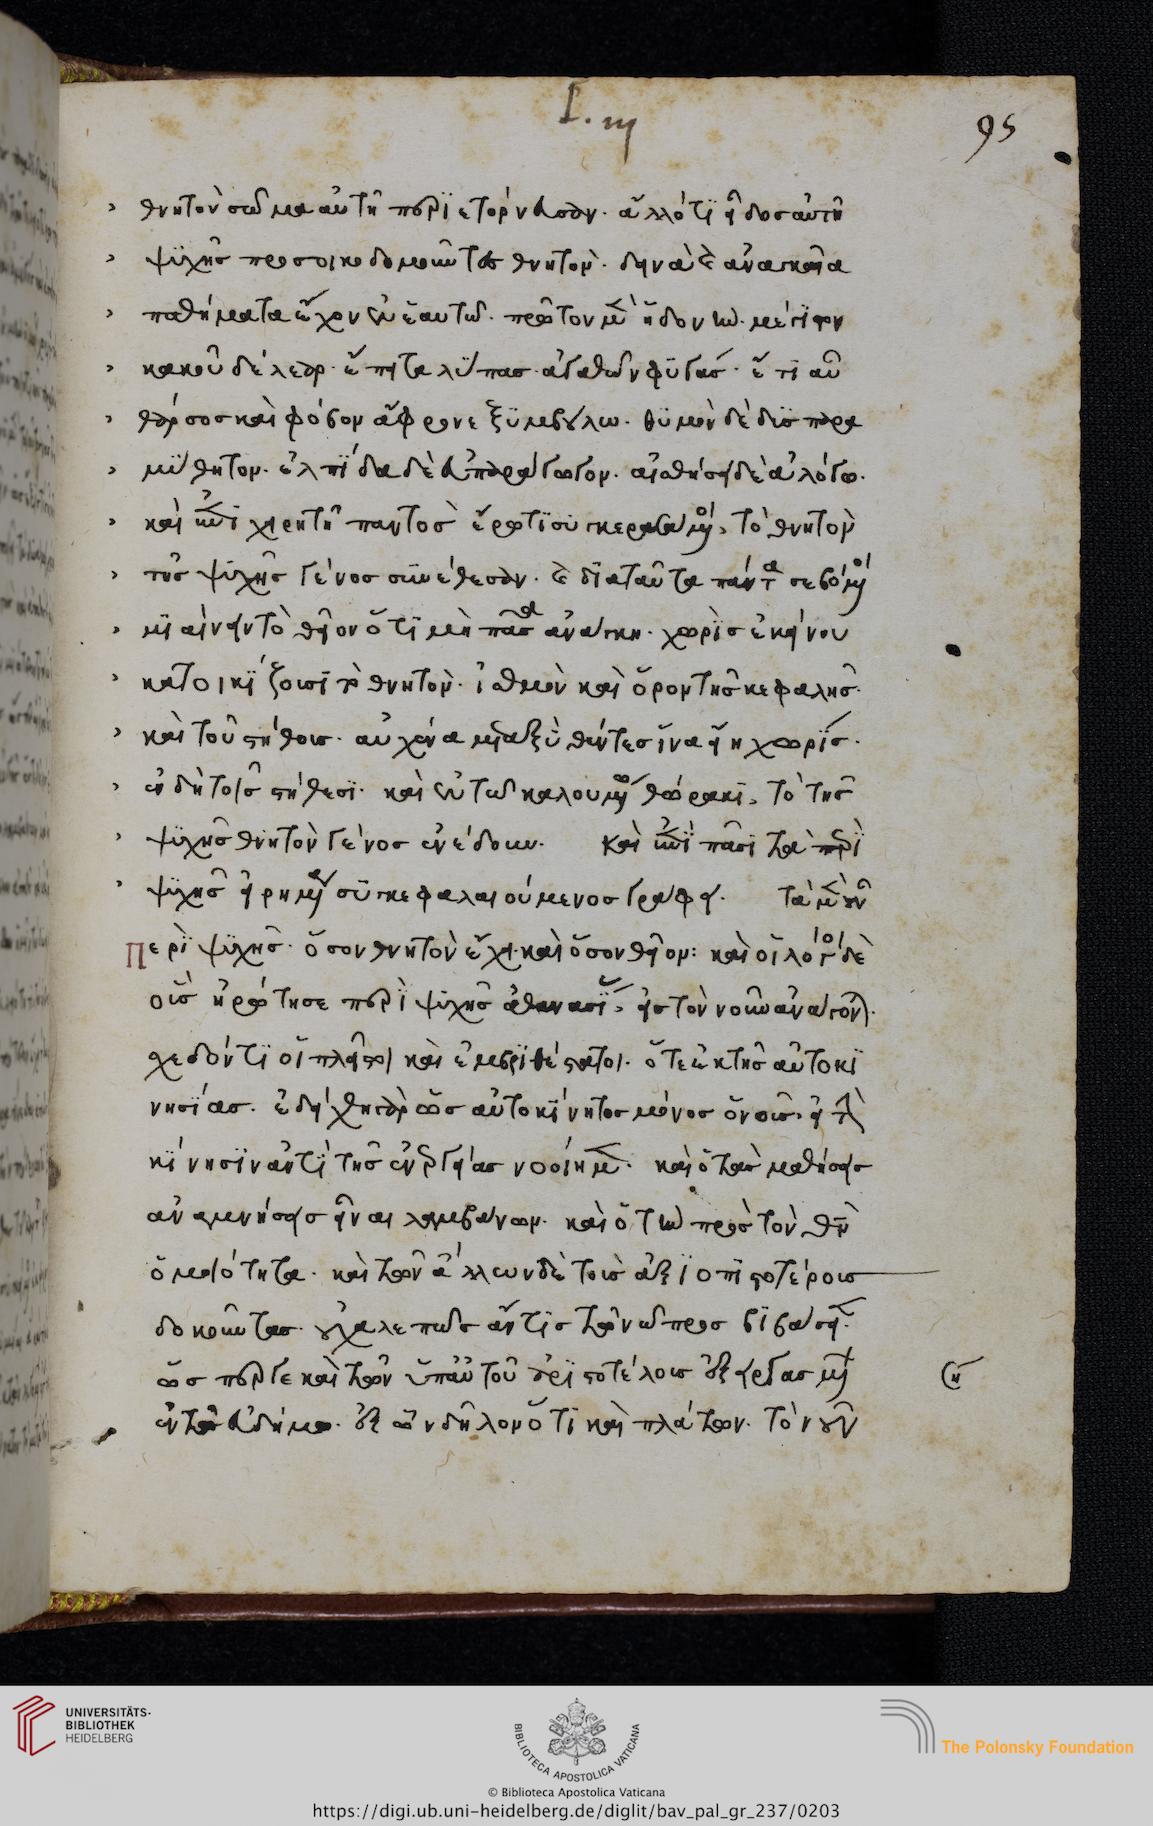 I. iij
95
θνητὸν σῶμα αὐτῇ περιετόρνευσαν. ἄλλό τι εἶδος αὐτῇ
ψυχῆς προσοικοδομοῦντες θνητόν. δεινὰ καὶ ἀναγκαῖα
παθήματα ἔχον ἐν ἑαυτῷ. πρῶτον μὲν ἡδονὴν. μέγιστον
κακοῦ δέλεαρ. ἔπειτα λύπας. ἀγαθῶν φυγάς. ἔτι αὖ
θάρσος καὶ φόβον ἄφρονε ξυμβούλω. θυμὸν δὲ δυσπαρα
μύθητον. ἐλπίδα δὲ εὐπαράγωγον. αἰσθήσει δὲ ἀλόγω.
καὶ ἐπιχειρητῇ παντὸς ἔρωτι συγκερασάμενοι, τὸ θνητὸν
τῆς ψυχῆς γένος συνέθεσαν. καὶ διὰ ταῦτα πάντα σεβόμενοι
μιαίνειν τὸ θεῖον ὅτι μὴ πᾶσα ἀνάγκη. χωρὶς ἐκείνου
κατοικίζουσι τὸ θνητόν. ἰσθμὸν καὶ ὅρον τῆς κεφαλῆς.
καὶ τοῦ στήθους. αὐχένα μεταξὺ θέντες ἵνα εἴη χωρίς.
ἐν δὴ τοῖς στήθεσι. καὶ ἐν τῷ καλουμένῳ θώρακι, τὸ τῆς
ψυχῆς θνητὸν γένος ἐνέδουν. καὶ ἐπὶ πᾶσι τὰ περὶ
ψυχῆς εἰρημένα συγκεφαλαιούμενος γράφει. τὰ μὲν οὖν
περὶ ψυχῆς. ὅσον θνητὸν ἔχει καὶ ὅσον θεῖον: καὶ οἱ λόγοι δὲ
οὓς ἠρώτησε περὶ ψυχῆς ἀθανασίας, εἰς τὸν νοῦν ἀνάγονται.
σχεδόν τι οἱ πλεῖστοι καὶ ἐμβριθέστατοι. ὅτε ἐκ τῆς αὐτοκι
νησίας. ἐδείχθη γὰρ ὡς αὐτοκίνητος μόνος ὁ νοῦς. εἰ τὴν
κίνησιν ἀντὶ τῆς ἐνεργείας νοοίημεν. καὶ ὁ τὰς μαθήσεις
ἀναμνήσεις εἶναι λαμβάνων. καὶ ὁ τὴν πρὸς τὸν θεὸν
ὁμοιότητα. καὶ τῶν ἄλλων δὲ τοὺς ἀξιοπιστοτέρους
δοκοῦντας. οὐ χαλεπῶς ἄν τις τῷ νῷ προσβιβάσειεν.
ὥσπερ γε καὶ τῶν ὑπ' αὐτοῦ ἀριστοτέλους ἐξειργασμένων
ἐν τῷ εὐδήμῳ. ἐξ ὧν δῆλον ὅτι καὶ πλάτων. τὸν νοῦν
UNIVERSITÄTS-
BIBLIOTHEK
HEIDELBERG
BIBLIOTECA APOSTOLICA VATICANA
The Polonsky Foundation
© Biblioteca Apostolica Vaticana
https://digi.ub.uni-heidelberg.de/diglit/bav_pal_gr_237/0203